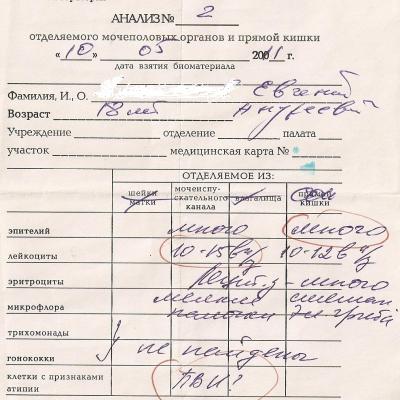 АНАЛИЗ № 2
отделяемого мочеполовых органов и прямой кишки
« 10 » 05 2011 г.
дата взятия биоматериала
Фамилия, И., О. Евгений
Возраст 18 лет Андреевич
Учреждение отделение палата
участок медицинская карта №
ОТДЕЛЯЕМОЕ ИЗ:
шейки матки мочеиспускательного канала влагалища прямой кишки
эпителий много много
лейкоциты 10-15 в п/з 10-12 в п/з
эритроциты - много
микрофлора мелкие палочки
трихомонады
гонококки не найдены
клетки с признаками атипии ПВИ?